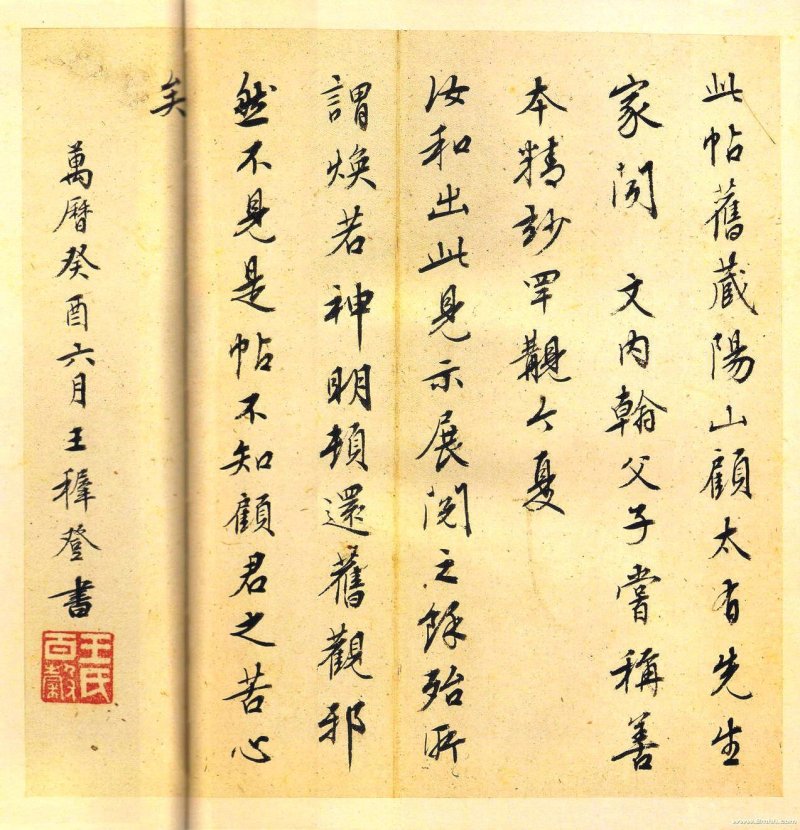 此帖舊藏陽山顧太有先生
家聞　文內翰父子嘗稱善
本精妙罕覯今夏
汝和出此見示展閱之餘殆所
謂煥若神明頓還舊觀邪
然不見是帖不知顧君之苦心
矣
萬曆癸酉六月王穉登書
王氏百穀